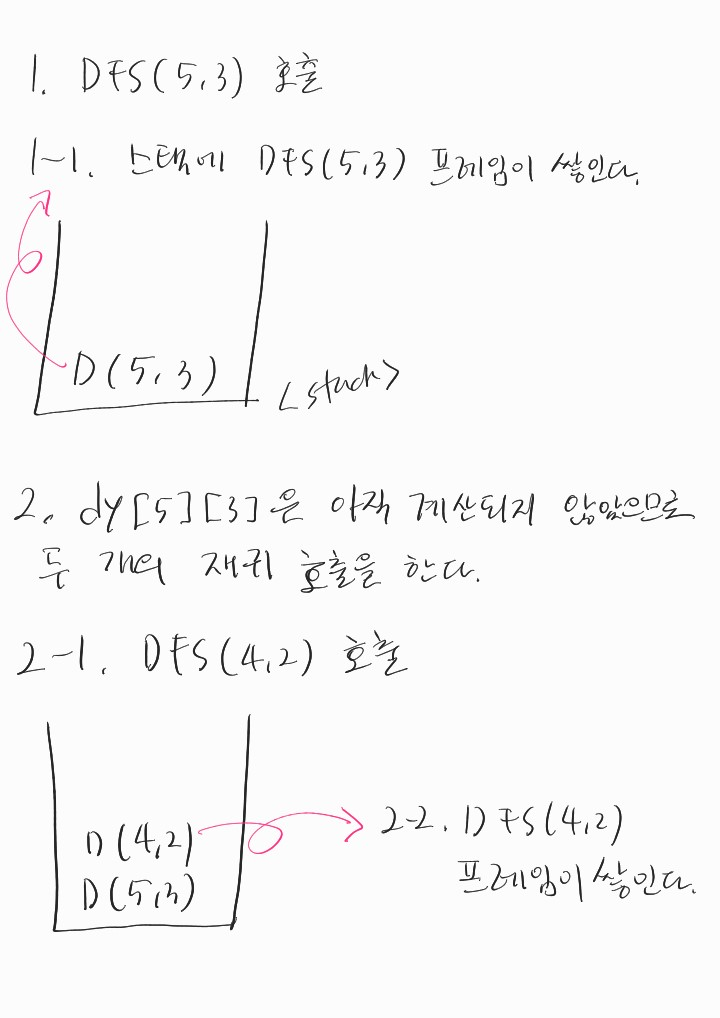 1. DFS(5,3) 호출
1-1. 스택에 DFS(5,3) 프레임이 쌓인다.
D(5,3)
<stack>
2. dy[5][3]은 아직 계산되지 않았으므로
두 개의 재귀 호출을 한다.
2-1. DFS(4,2) 호출
D(4,2)
D(5,3)
2-2. DFS(4,2)
프레임이 쌓인다.